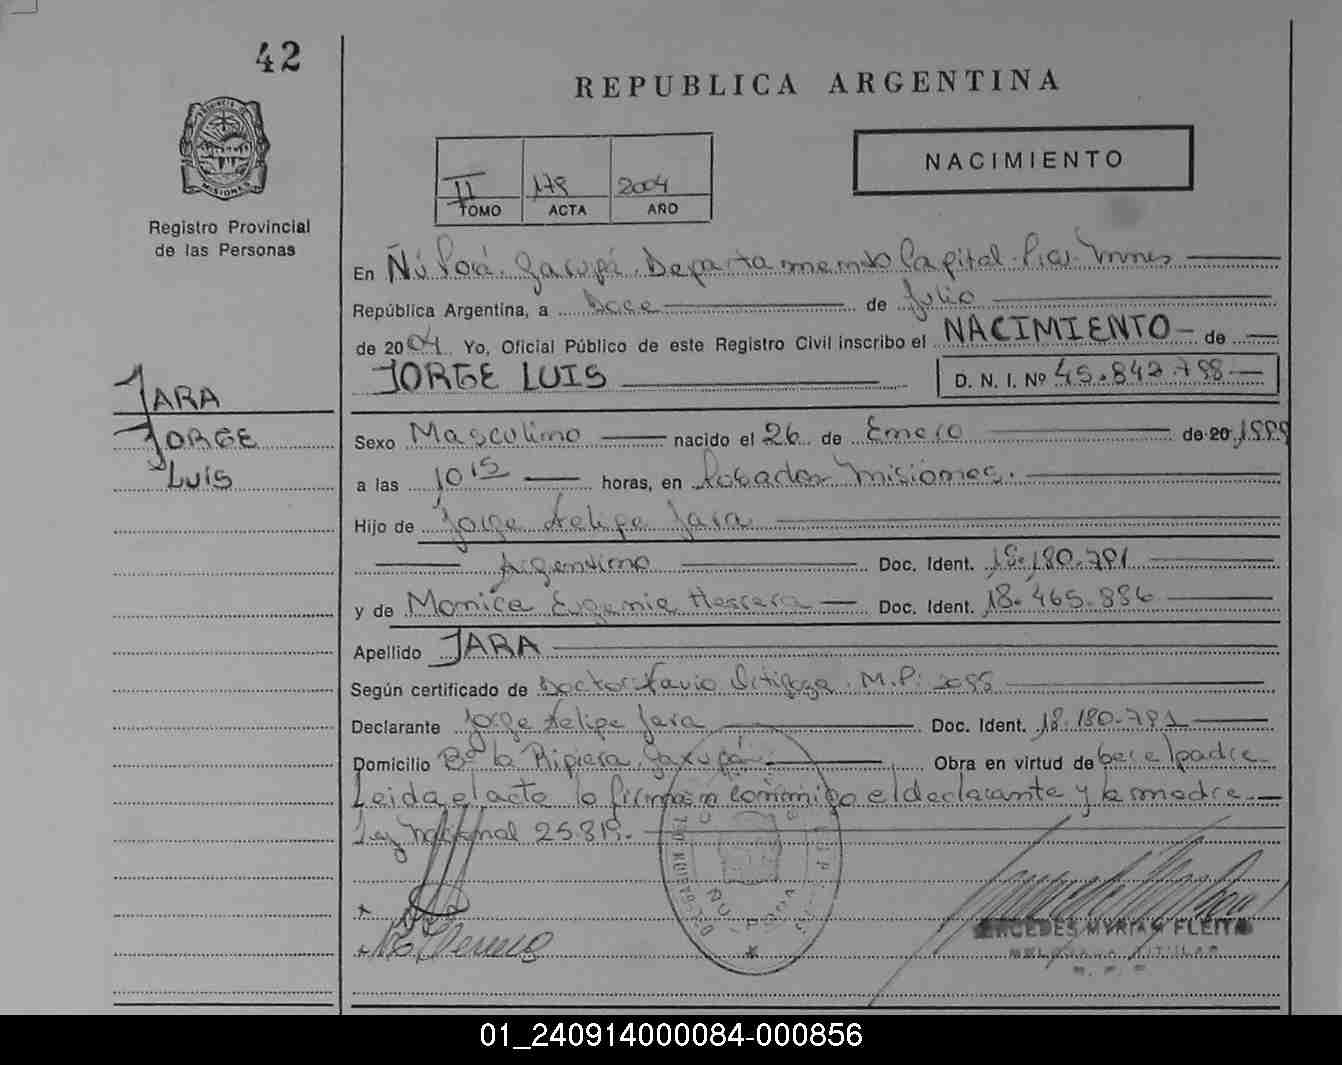 42
REPUBLICA ARGENTINA
PROVINCIA DE
MISIONES
Registro Provincial
de las Personas
NACIMIENTO
II 179 2004
TOMO ACTA AÑO
En Ñú Porá. Garupá. Departamento Capital. Misiones
República Argentina, a Doce de Julio
de 2004 Yo, Oficial Público de este Registro Civil inscribo el NACIMIENTO de
JORGE LUIS D. N. I. Nº 45.842.798
JARA
JORGE
LUIS
Sexo Masculino nacido el 26 de Enero de 20 1999
a las 10 15 horas, en Posadas Misiones.
Hijo de Jorge Felipe Jara
Argentino Doc. Ident. 18.180.791
y de Monica Eugenia Herrera Doc. Ident. 18.465.886
Apellido JARA
Según certificado de Doctor Favio M.P: 2095
Declarante Jorge Felipe Jara Doc. Ident. 18.180.791
Domicilio Bº la Ripiera. Garupá. Obra en virtud de ser el padre
Leida el acta la firman conmigo el declarante y la madre
Ley Nacional 25.819.
ÑU PORA
MERCEDES MYRIAM FLEITA
DELEGADA TITULAR
R. P. P.
01_240914000084-000856